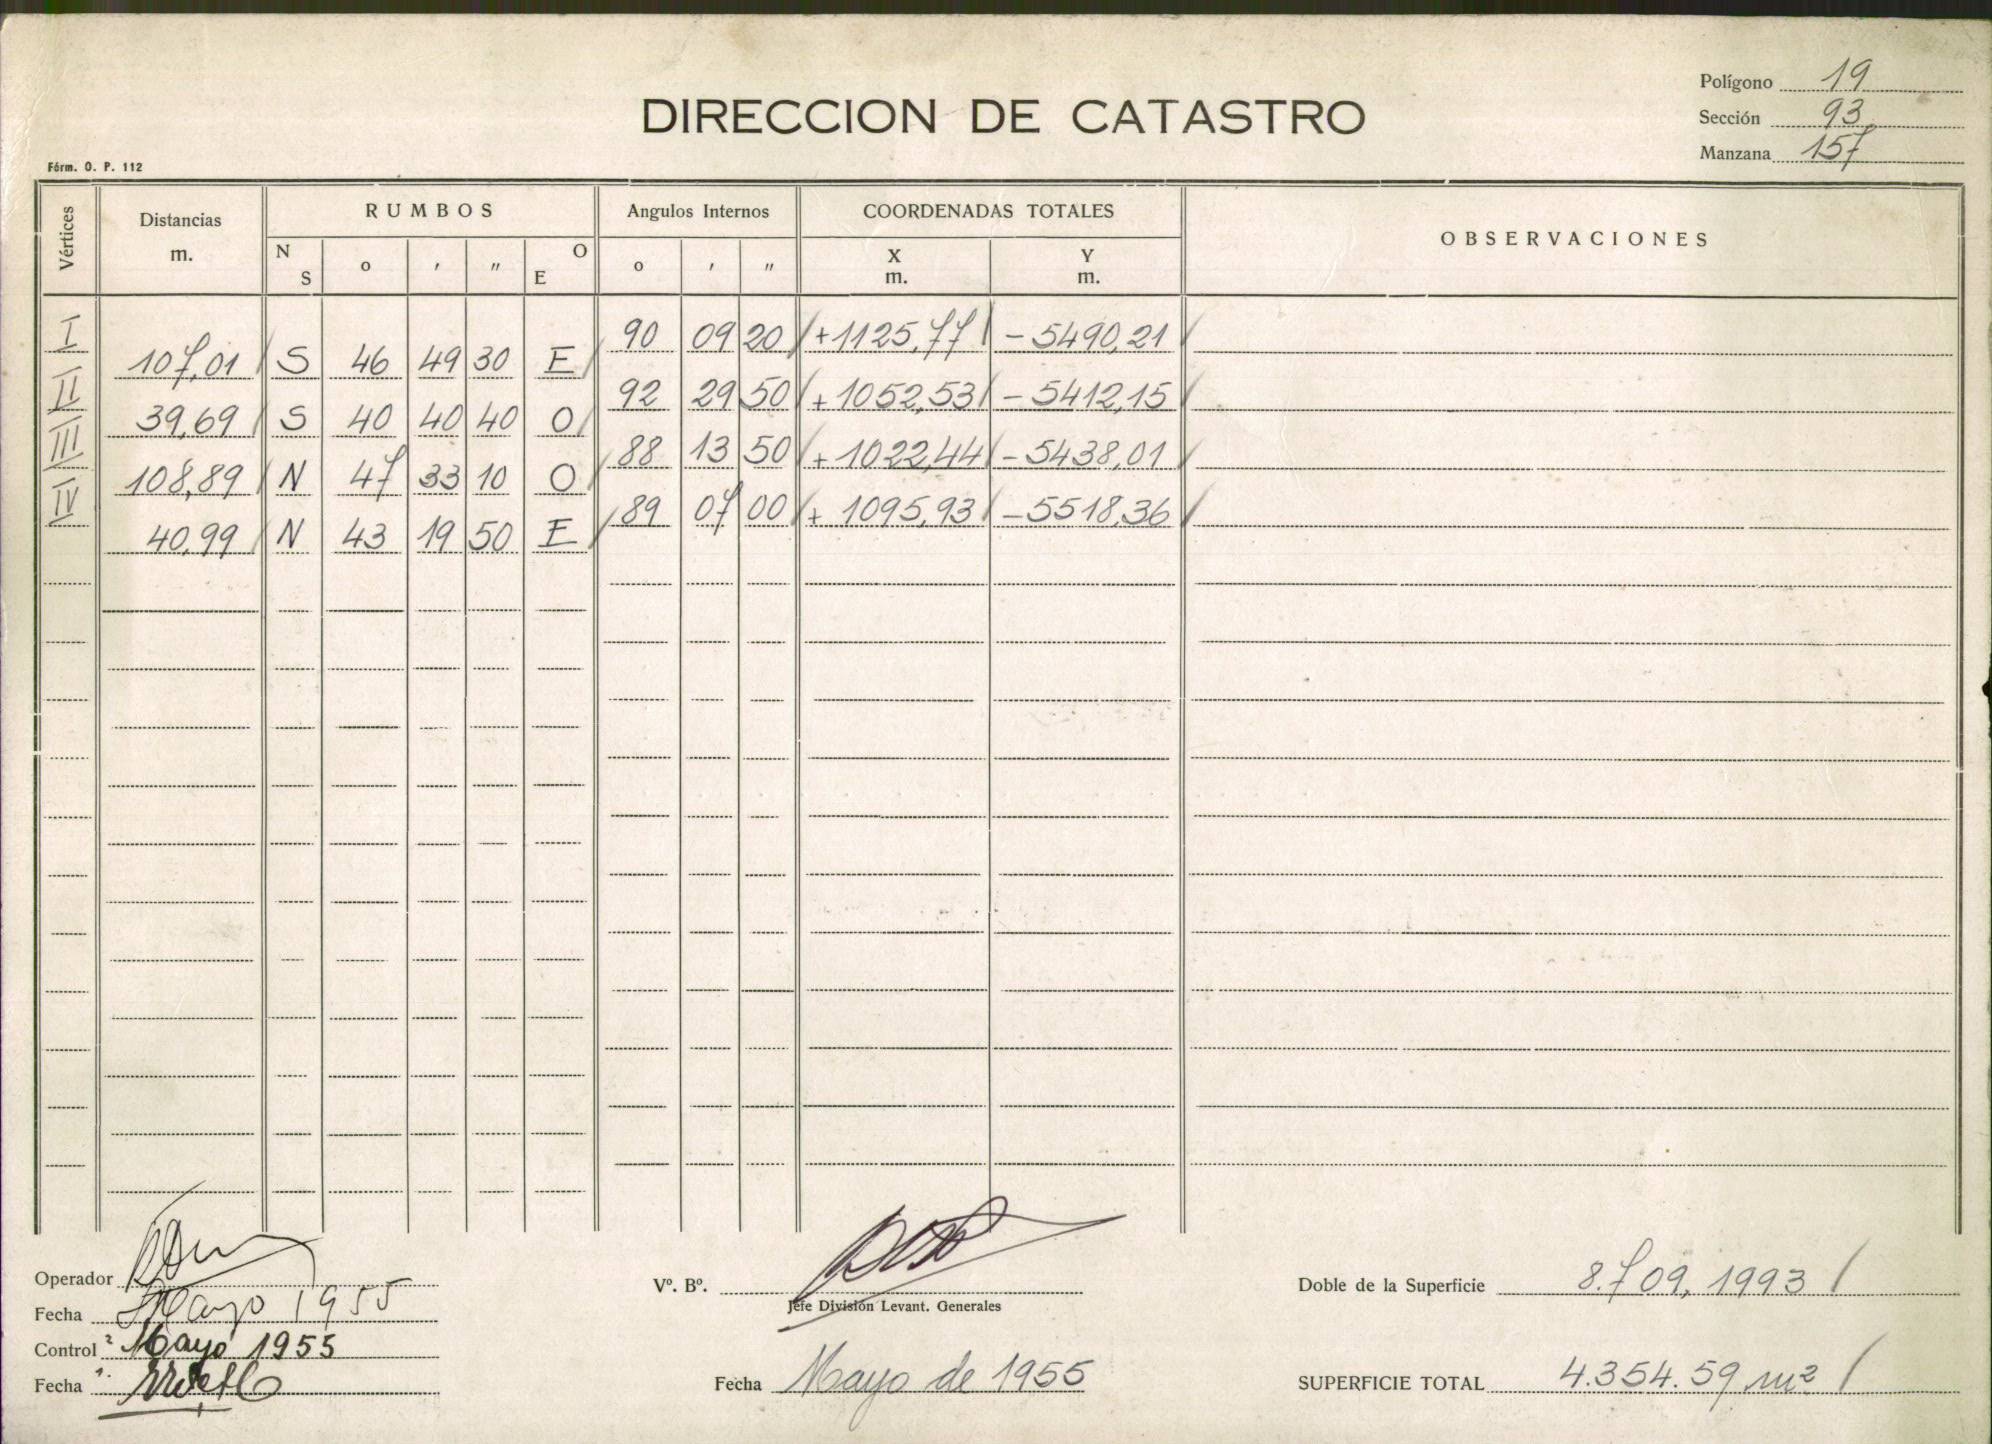 Polígono 19
DIRECCION DE CATASTRO
Sección 93
Manzana 157
Fórm. O. P. 112
Vértices Distancias m. RUMBOS N S o ' " O E Angulos Internos o ' " COORDENADAS TOTALES X m. Y m. OBSERVACIONES
I 90 09 20 +1125,77 -5490,21
107,01 S 46 49 30 E
II 92 29 50 +1052,53 -5412,15
39,69 S 40 40 40 O
III 88 13 50 +1022,44 -5438,01
108,89 N 47 33 10 O
IV 89 07 00 +1095,93 -5518,36
40,99 N 43 19 50 E
Operador
Vº. Bº.
Doble de la Superficie 8.709,1993
Jefe División Levant. Generales
Fecha Mayo 1955
Control Mayo 1955
Fecha
Fecha Mayo de 1955
SUPERFICIE TOTAL 4.354.59 m²